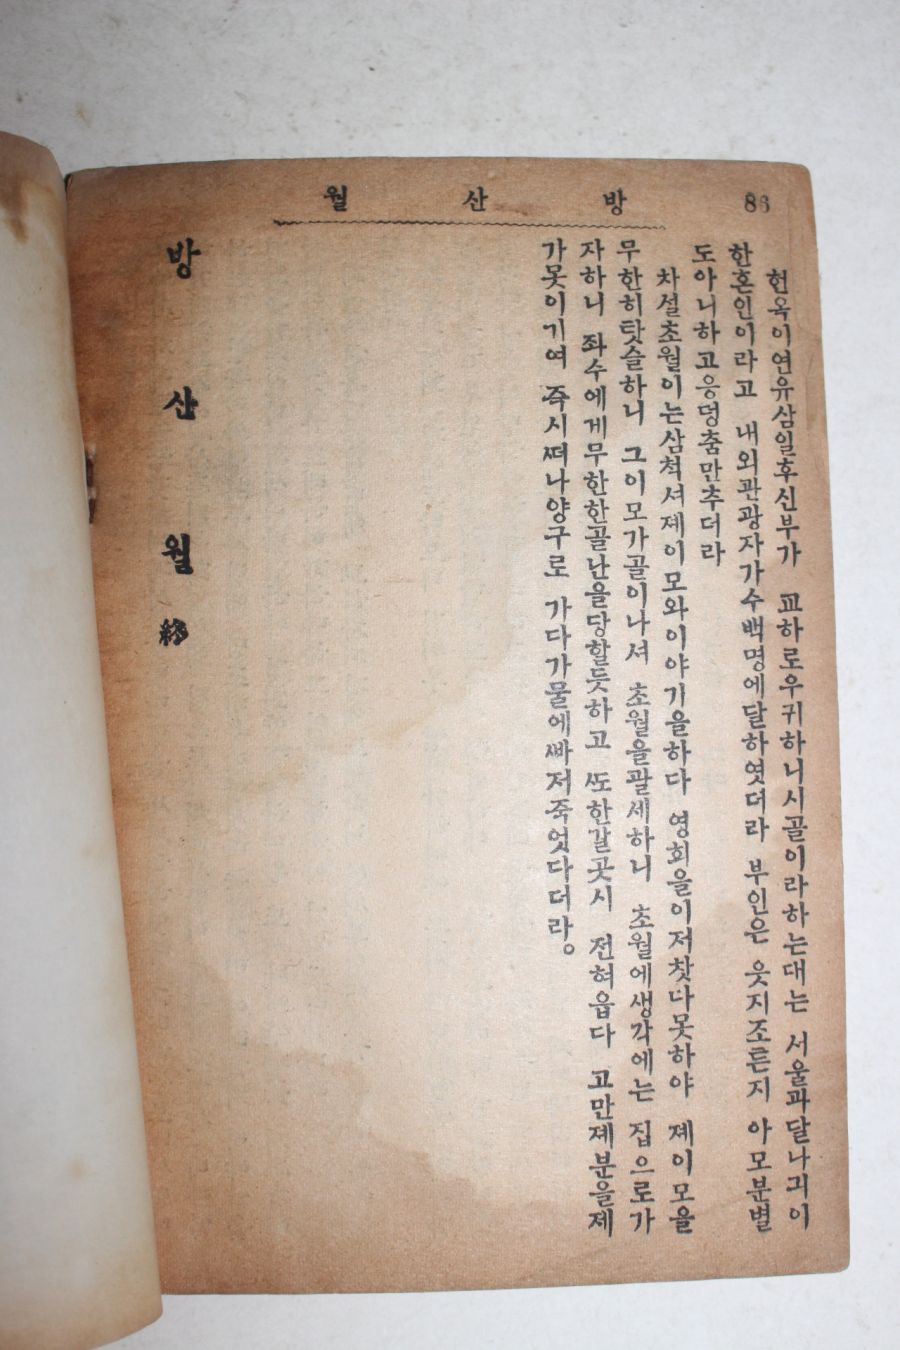 방산월
86
헌옥이연유삼일후신부가 교하로우귀하니시골이라하는대는 서울과달나긔이
한혼인이라고 내외관광자가수백명에달하엿더라 부인은 웃지조른지 아모분별
도아니하고응덩춤만추더라
차설초월이는삼척셔졔이모와이야기을하다 영회을이저찻다못하야 졔이모을
무한히탓슬하니 그이모가골이나셔 초월을괄세하니 초월에생각에는 집으로가
자하니 좌수에게무한한골난을당할듯하고 ᄯᅩ한갈곳시 전혀읍다 고만졔분을졔
가못이기여 즉시ᄯᅥ나양구로 가다가물에ᄲᅡ저죽엇다더라。
방산월 終